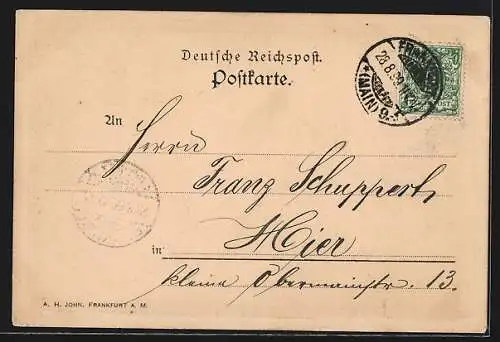 Deutsche Reichspost.
Postkarte.
FRANKFURT
28.8.99.
*(MAIN) 9.
An
Herrn
Franz Schuppert,
in Hier
kleine Obermainstr. 13.
A. H. JOHN, FRANKFURT A. M.